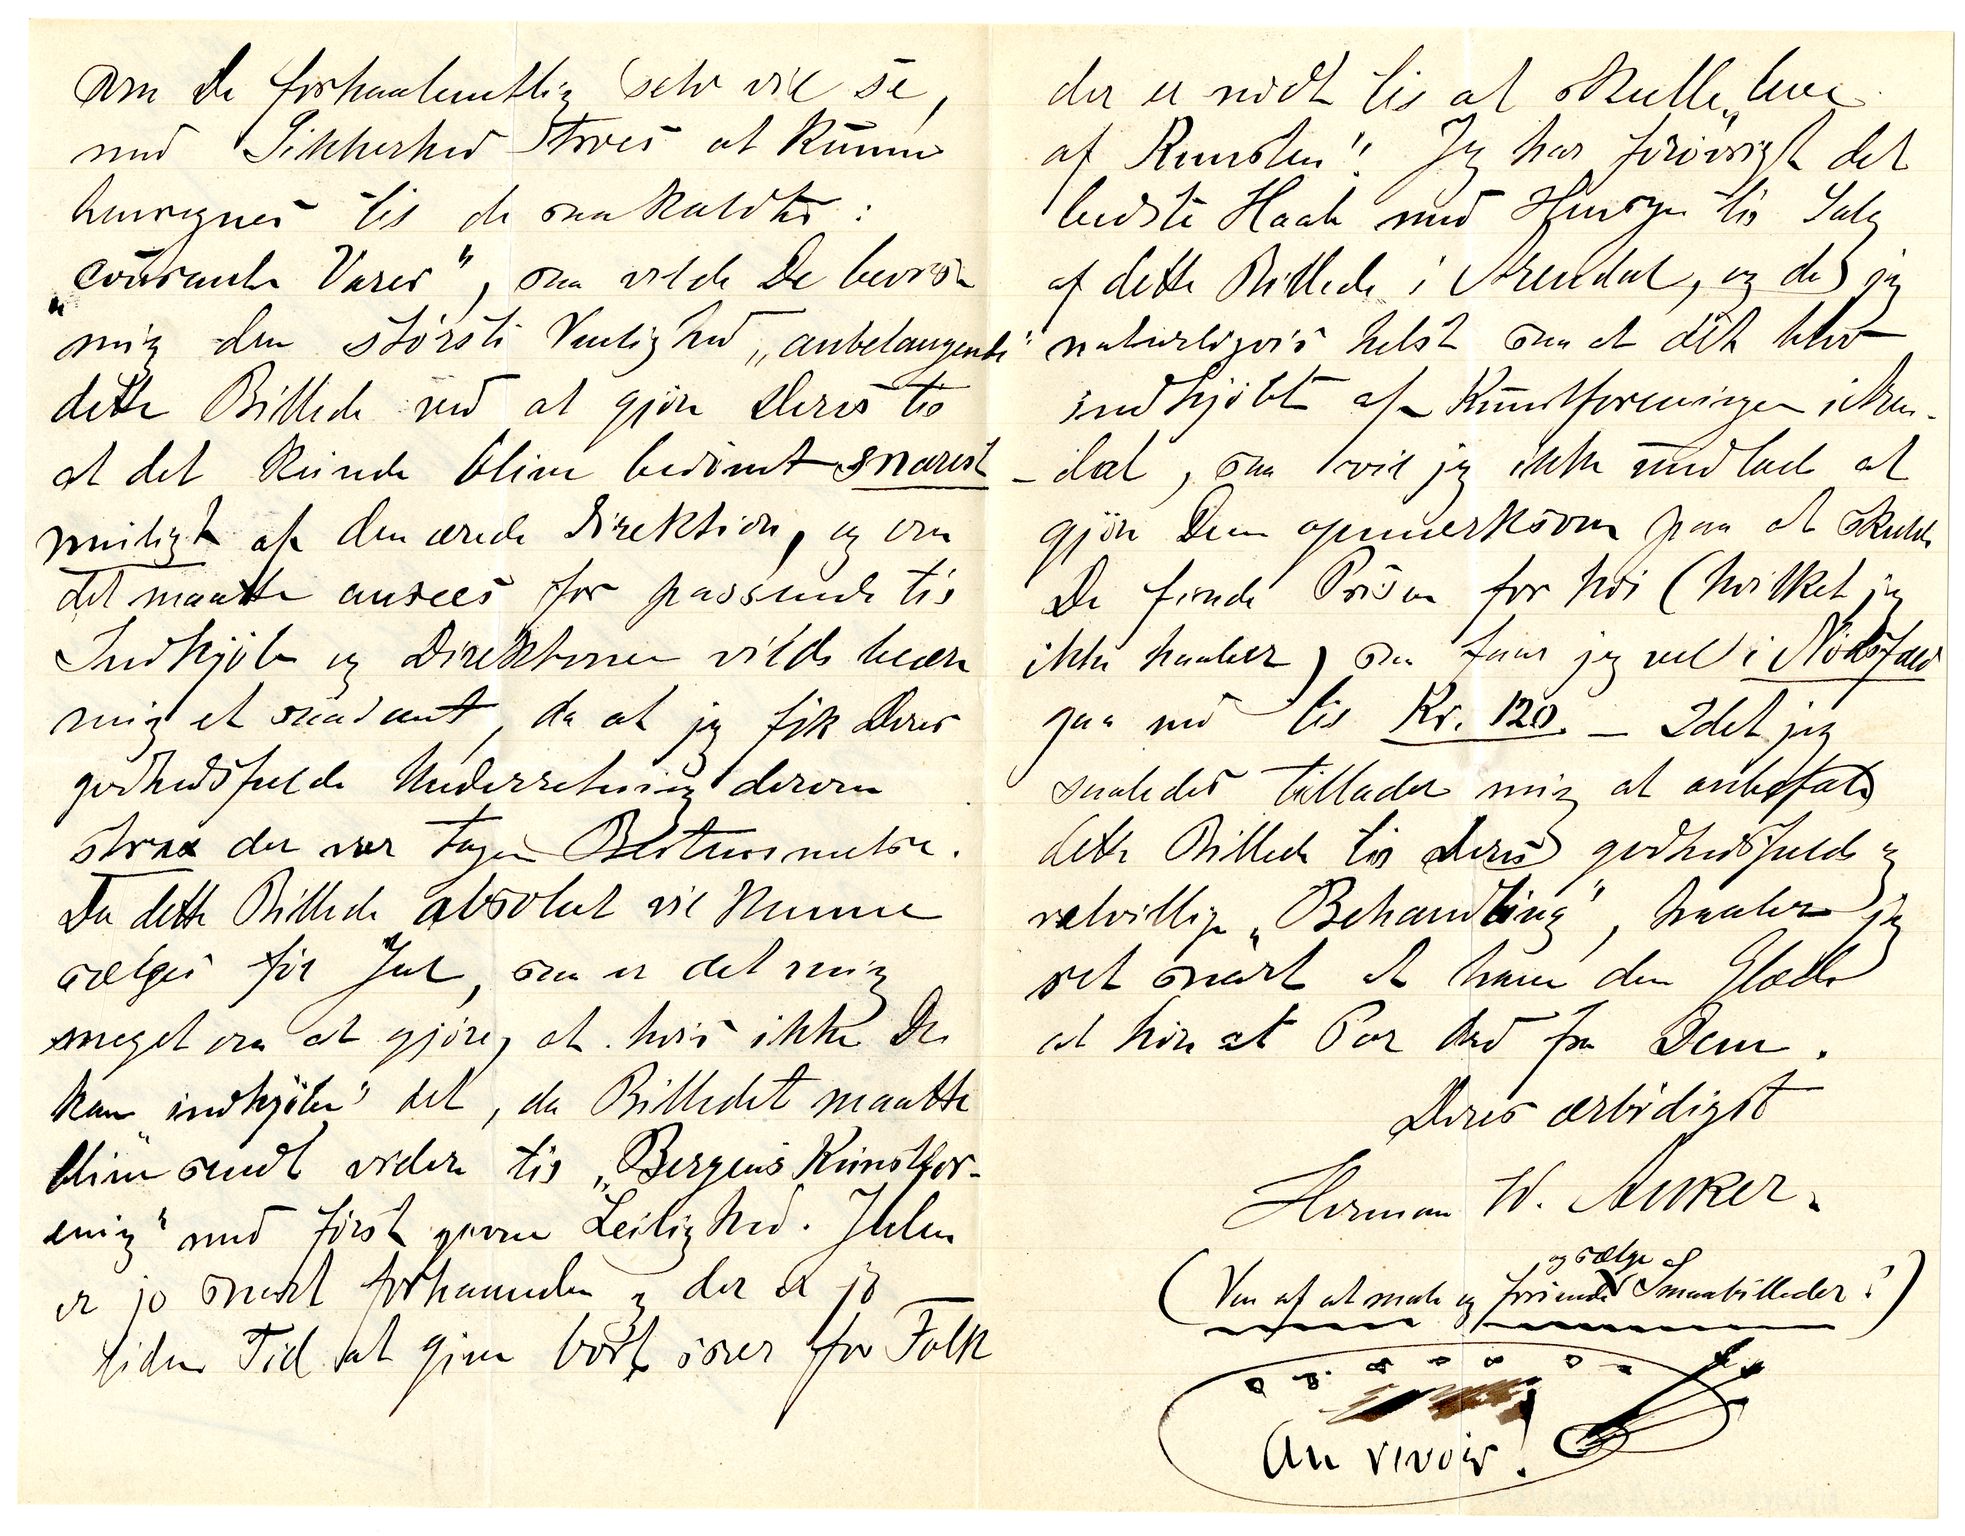 som De forhaabentlig selv vil se,
med Sikkerhed troes at kunne
henregnes til de saakaldte:
"courante Varer", saa vilde De bevise
mig den störste Venlighed "anbelangende"
dette Billede ved at gjöre Deres til
at det kunde blive bedömt snarest
muligt af den ærede Direktion, og om
det maatte ansees for passende til
Indkjöb og Direktionen vilde beære
mig et saadant, da at jeg fik Deres
godhedsfulde Underretning derom
strax der var tagen Bestemmelse.
Da dette Billede absolut vil kunne
sælges för Jul, saa er det mig
meget om at gjöre, at hvis ikke De
kan "indkjöbe" det, da Billedet maatte
blive sendt videre til "Bergens Kunstfor-
ening" med först given Leilighed. Julen
er jo snart forhaanden og der er jo
liden Tid at give bort över for Folk
der er nödt til at skulle "leve
af Kunsten"! Jeg har forövrigt det
bedste Haab med Hensyn til Salg
af dette Billede i Arendal, og da jeg
naturligvis helst saa at det blev
indkjöbt af Kunstforeningen i Aren-
dal, saa vil jeg ikke undlade at
gjöre Dem opmerksom paa at skulde
De finde Prisen for höi (hvilket jeg
ikke haaber) saa faar jeg vel i Nödsfald
gaa ned til Kr. 120. – Idet jeg
saaledes tillader mig at anbefale
dette Billede til Deres godhedsfulde og
velvillige "Behandling", haaber jeg
ret snart at have den Glæde
at höre et Par Ord fra Dem.
Deres ærbödigst
Herman W. Anker.
og sælge af
(Ven af at male og forsende Smaabilleder!)
Au revoir!